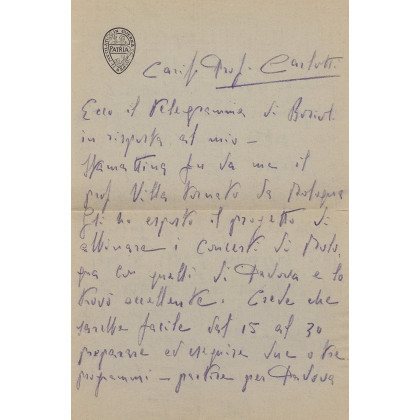 PATRIA
Cariss. Prof. Carlotti
Ecco il telegramma di Bossi
in risposta al mio —
Stamattina fu da me il
prof Villa tornato da Bologna
Gli ho esposto il progetto di
abbinare i concerti di Bolo,
gna con quelli di Padova e lo
trovò eccellente. Crede che
sarebbe facile dal 15 al 30
preparare ed eseguire due o tre
programmi — partire per Padova